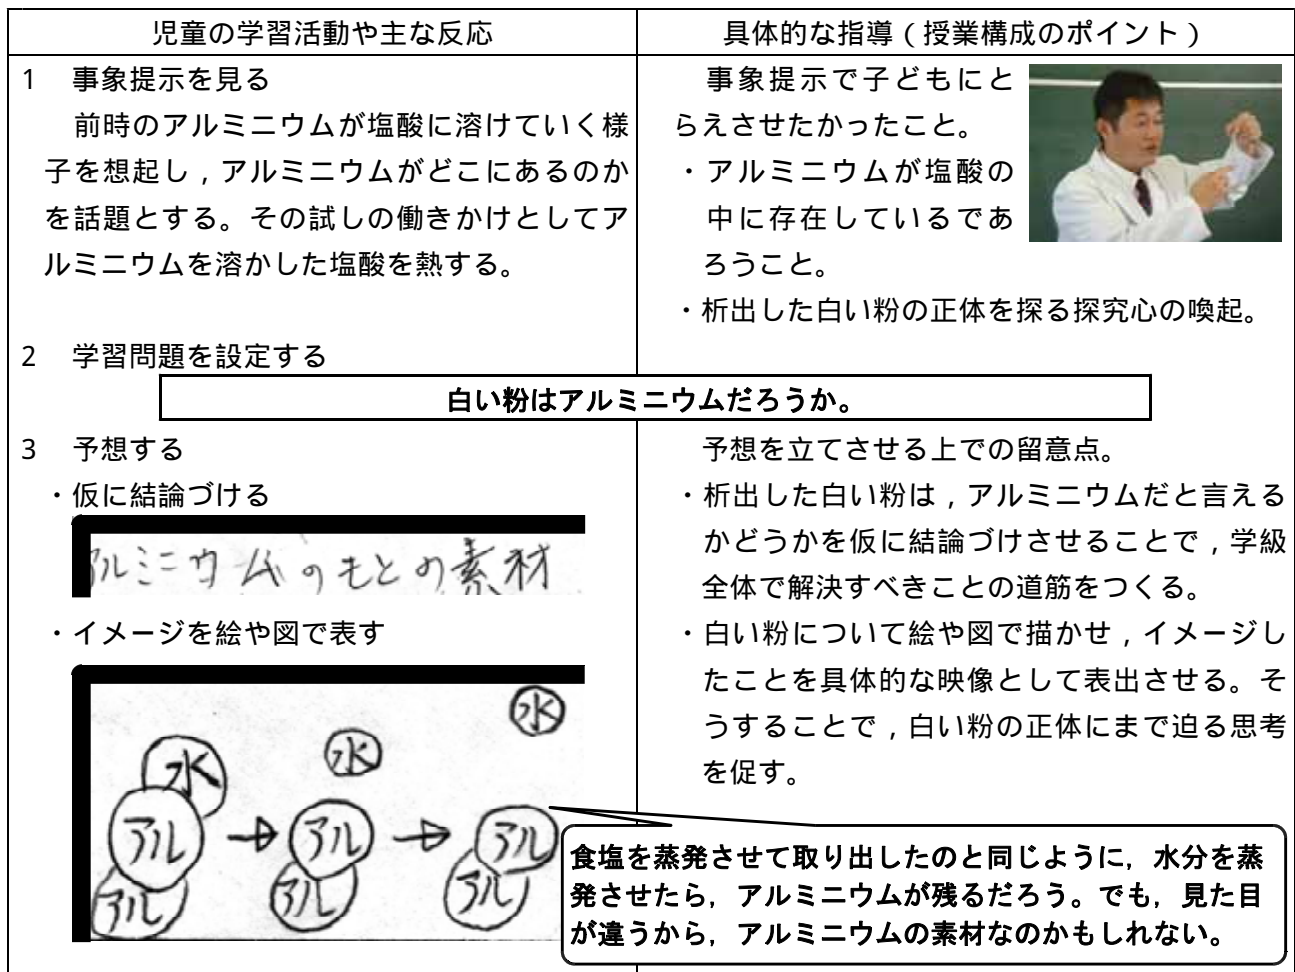 児童の学習活動や主な反応
具体的な指導（授業構成のポイント）
1　事象提示を見る
前時のアルミニウムが塩酸に溶けていく様
子を想起し，アルミニウムがどこにあるのか
を話題とする。その試しの働きかけとしてア
ルミニウムを溶かした塩酸を熱する。
事象提示で子どもにと
らえさせたかったこと。
・アルミニウムが塩酸の
中に存在しているであ
ろうこと。
・析出した白い粉の正体を探る探究心の喚起。
2　学習問題を設定する
白い粉はアルミニウムだろうか。
3　予想する
・仮に結論づける
アルミニウムのもとの素材
・イメージを絵や図で表す
水
水
水
アル → アル → アル
アル
アル
アル
予想を立てさせる上での留意点。
・析出した白い粉は，アルミニウムだと言える
かどうかを仮に結論づけさせることで，学級
全体で解決すべきことの道筋をつくる。
・白い粉について絵や図で描かせ，イメージし
たことを具体的な映像として表出させる。そ
うすることで，白い粉の正体にまで迫る思考
を促す。
食塩を蒸発させて取り出したのと同じように，水分を蒸
発させたら，アルミニウムが残るだろう。でも，見た目
が違うから，アルミニウムの素材なのかもしれない。